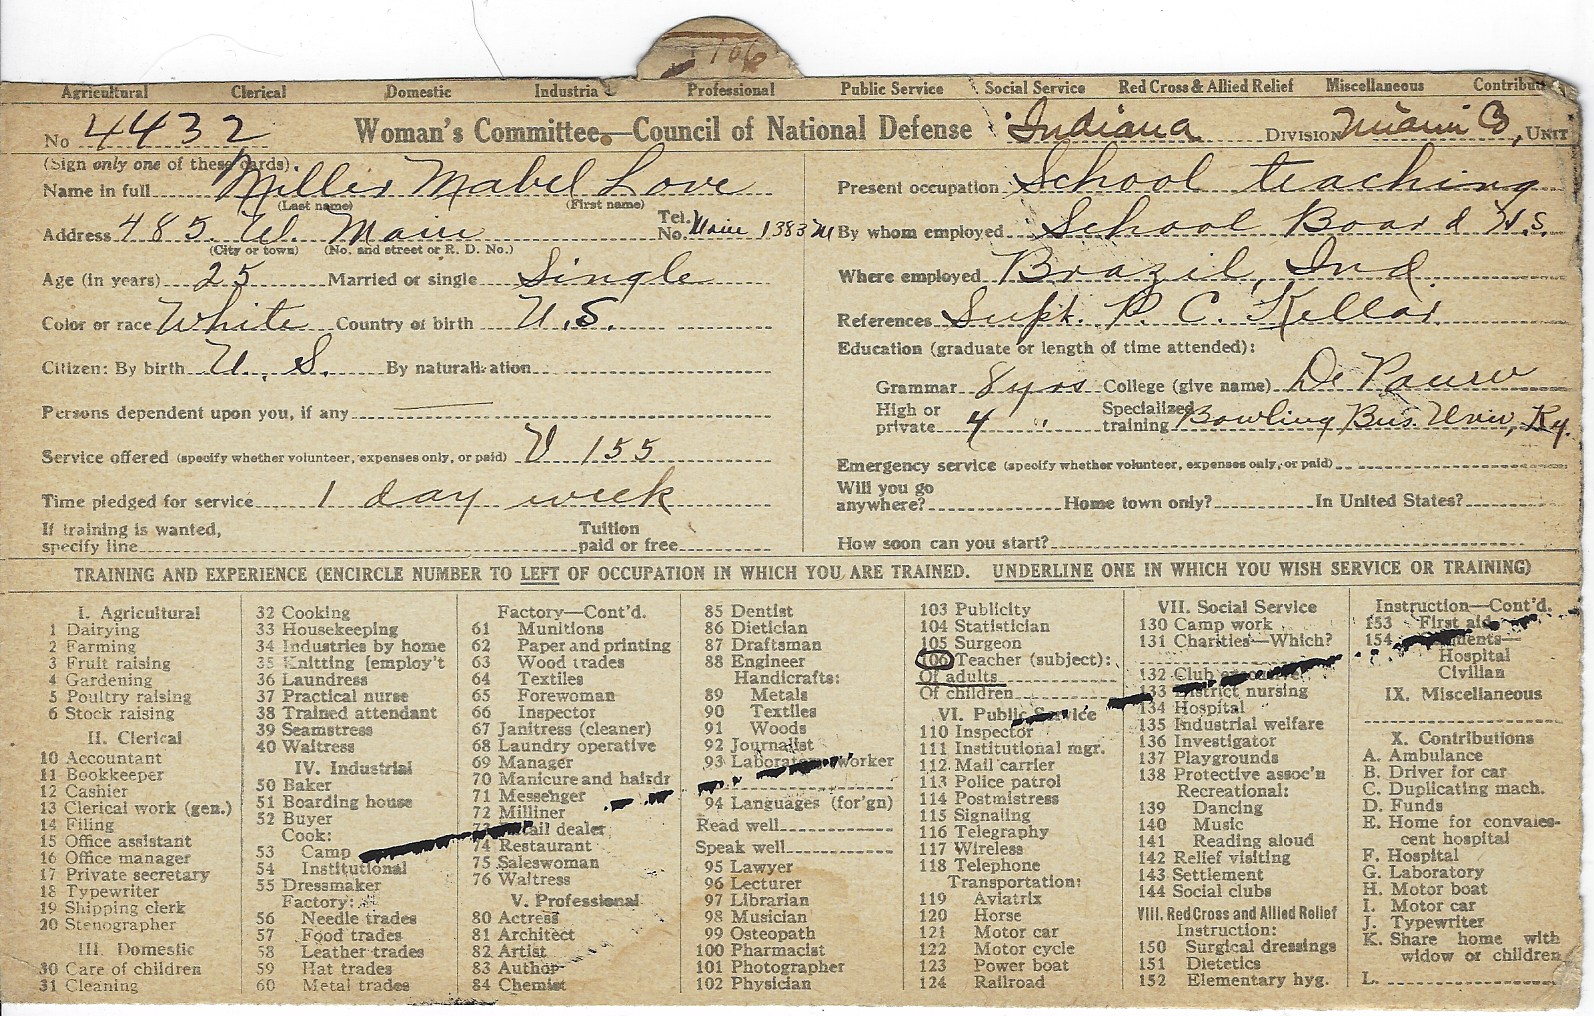 106
Agricultural Clerical Domestic Industrial Professional Public Service Social Service Red Cross & Allied Relief Miscellaneous Contribut
No 4432 Woman's Committee.—Council of National Defense Indiana DIVISION Miami Co, UNIT
(Sign only one of these cards).
Name in full Miller Mabel Love
(Last name) (First name)
Address 485. W. Main Tel. No. Main 1383 M
(City or town) (No. and street or R. D. No.)
Age (in years) 25 Married or single Single
Color or race White Country of birth U.S.
Citizen: By birth U. S. By naturalization
Persons dependent upon you, if any —
Service offered (specify whether volunteer, expenses only, or paid) V 155
Time pledged for service 1 day week
If training is wanted,
specify line Tuition paid or free
Present occupation School teaching
By whom employed School Board H.S.
Where employed Brazil, Ind.
References Supt. P. C. Kellar
Education (graduate or length of time attended):
Grammar 8 yrs College (give name) De Pauw
High or private 4 " Specialized training Bowling Bus. Univ, Ky.
Emergency service (specify whether volunteer, expenses only, or paid)
Will you go anywhere? Home town only? In United States?
How soon can you start?
TRAINING AND EXPERIENCE (ENCIRCLE NUMBER TO LEFT OF OCCUPATION IN WHICH YOU ARE TRAINED. UNDERLINE ONE IN WHICH YOU WISH SERVICE OR TRAINING)
I. Agricultural
1 Dairying
2 Farming
3 Fruit raising
4 Gardening
5 Poultry raising
6 Stock raising
II. Clerical
10 Accountant
11 Bookkeeper
12 Cashier
13 Clerical work (gen.)
14 Filing
15 Office assistant
16 Office manager
17 Private secretary
18 Typewriter
19 Shipping clerk
20 Stenographer
III. Domestic
30 Care of children
31 Cleaning
32 Cooking
33 Housekeeping
34 Industries by home
35 Knitting [employ't
36 Laundress
37 Practical nurse
38 Trained attendant
39 Seamstress
40 Waitress
IV. Industrial
50 Baker
51 Boarding house
52 Buyer
Cook:
53 Camp
54 Institutional
55 Dressmaker
Factory:
56 Needle trades
57 Food trades
58 Leather trades
59 Hat trades
60 Metal trades
Factory—Cont'd.
61 Munitions
62 Paper and printing
63 Wood trades
64 Textiles
65 Forewoman
66 Inspector
67 Janitress (cleaner)
68 Laundry operative
69 Manager
70 Manicure and hairdr
71 Messenger
72 Milliner
73 Retail dealer
74 Restaurant
75 Saleswoman
76 Waitress
V. Professional
80 Actress
81 Architect
82 Artist
83 Author
84 Chemist
85 Dentist
86 Dietician
87 Draftsman
88 Engineer
Handicrafts:
89 Metals
90 Textiles
91 Woods
92 Journalist
93 Laboratory worker
94 Languages (for'gn)
Read well
Speak well
95 Lawyer
96 Lecturer
97 Librarian
98 Musician
99 Osteopath
100 Pharmacist
101 Photographer
102 Physician
103 Publicity
104 Statistician
105 Surgeon
106 Teacher (subject):
Of adults
Of children
VI. Public Service
110 Inspector
111 Institutional mgr.
112 Mail carrier
113 Police patrol
114 Postmistress
115 Signaling
116 Telegraphy
117 Wireless
118 Telephone
Transportation:
119 Aviatrix
120 Horse
121 Motor car
122 Motor cycle
123 Power boat
124 Railroad
VII. Social Service
130 Camp work
131 Charities—Which?
132 Club
133 District nursing
134 Hospital
135 Industrial welfare
136 Investigator
137 Playgrounds
138 Protective assoc'n
Recreational:
139 Dancing
140 Music
141 Reading aloud
142 Relief visiting
143 Settlement
144 Social clubs
VIII. Red Cross and Allied Relief
Instruction:
150 Surgical dressings
151 Dietetics
152 Elementary hyg.
Instruction—Cont'd.
153 First aid
154
Hospital
Civilian
IX. Miscellaneous
X. Contributions
A. Ambulance
B. Driver for car
C. Duplicating mach.
D. Funds
E. Home for convales-
cent hospital
F. Hospital
G. Laboratory
H. Motor boat
I. Motor car
J. Typewriter
K. Share home with
widow or children
L.